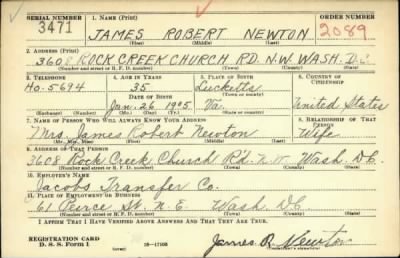 SERIAL NUMBER 1. NAME (Print) ORDER NUMBER
3471 JAMES ROBERT NEWTON 2089
(First) (Middle) (Last)
2. ADDRESS (Print)
3608 ROCK CREEK CHURCH RD. N.W. WASH. D.C.
(Number and street or R. F. D. number) (Town) (County) (State)
3. TELEPHONE 4. AGE IN YEARS 5. PLACE OF BIRTH 6. COUNTRY OF CITIZENSHIP
HO-5694 35 Lucketts
DATE OF BIRTH (Town or county)
Jan. 26 1905 Va. United States
(Exchange) (No.) (Mo.) (Day) (Yr.) (State or country)
7. NAME OF PERSON WHO WILL ALWAYS KNOW YOUR ADDRESS 8. RELATIONSHIP OF THAT PERSON
Mrs. James Robert Newton Wife
(Mr., Mrs., Miss) (First) (Middle) (Last)
9. ADDRESS OF THAT PERSON
3608 Rock Creek Church R'd. N.W. Wash. D.C.
(Number and street or R. F. D. number) (Town) (County) (State)
10. EMPLOYER'S NAME
Jacobs Transfer Co.
11. PLACE OF EMPLOYMENT OR BUSINESS
61 Peirce St. N.E. Wash. D.C.
(Number and street or R. F. D. number) (Town) (County) (State)
I AFFIRM THAT I HAVE VERIFIED ABOVE ANSWERS AND THAT THEY ARE TRUE.
REGISTRATION CARD
D. S. S. Form 1 16—17105 James R. Newton
(Registrant's signature)